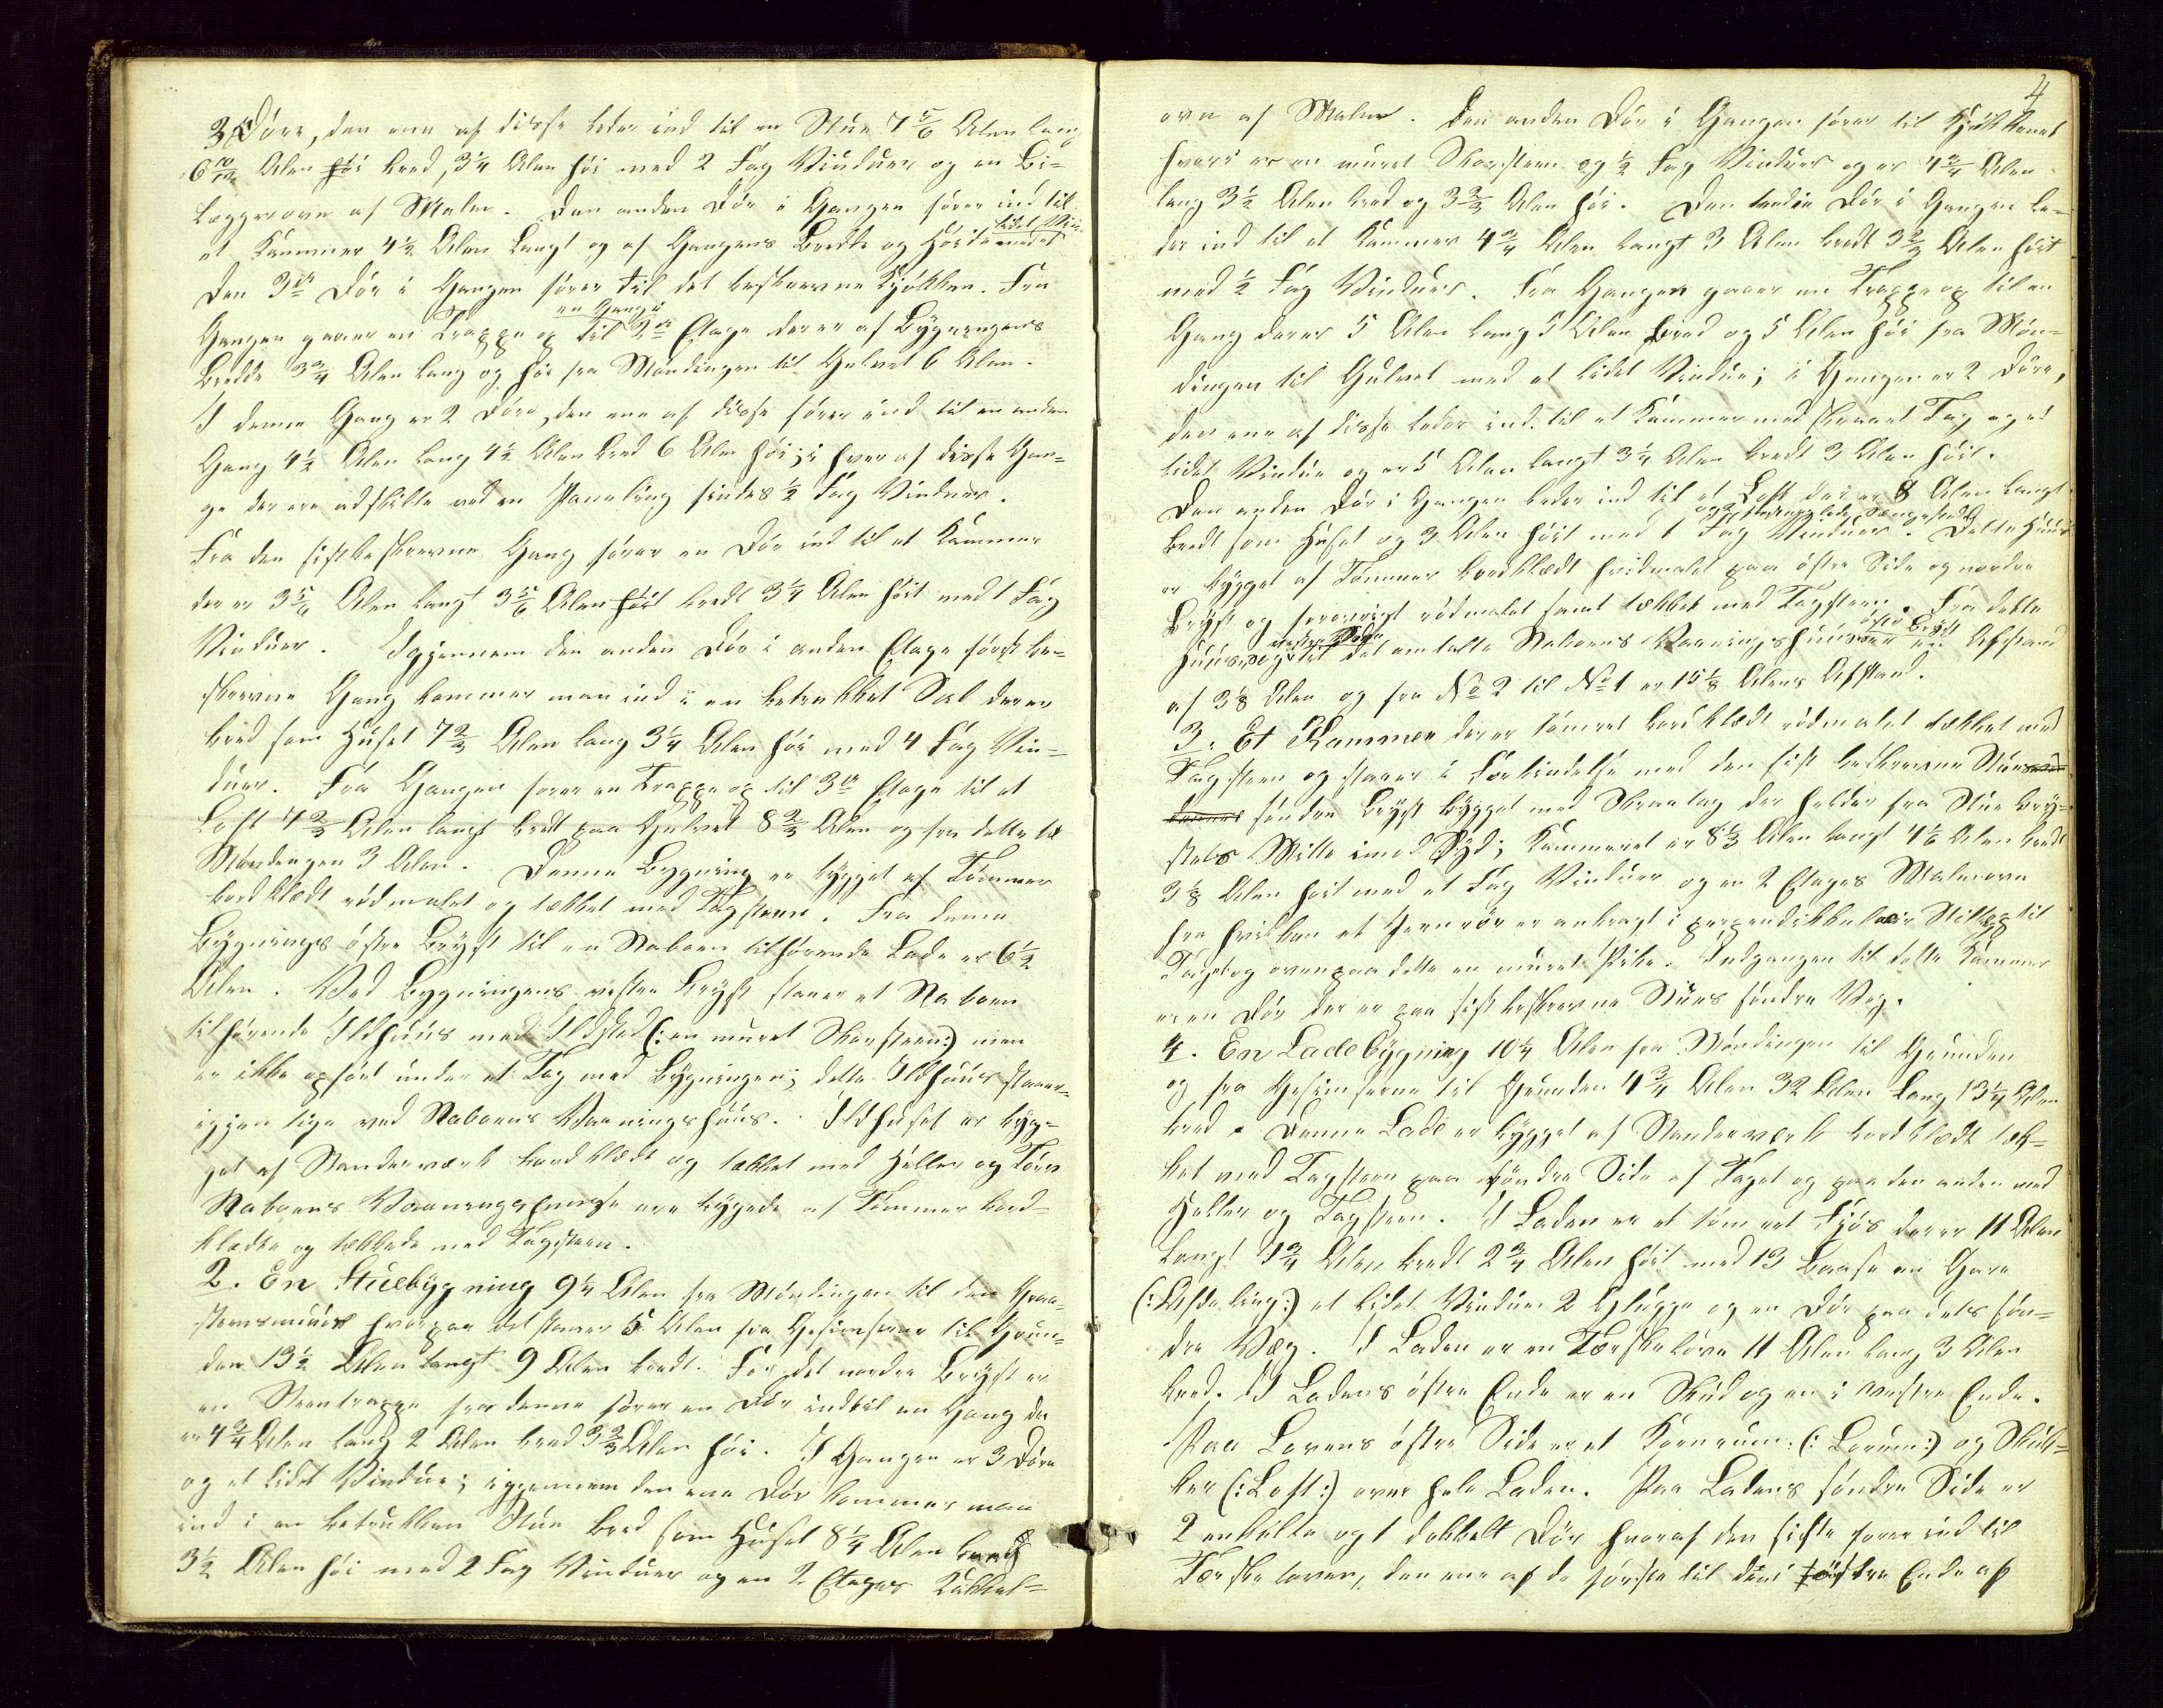 3 Döre, den ene af disse leder ind til en Stue 7 5/6 Alen lang
6 10/12 Alen höi bred, 3 1/4 Alen höi med 2 Fag Vinduer og en Bi-
læggerovn af Malm. Den anden Dör i Gangen förer ind til
et Kammer 4 1/2 Alen langt og af Gangens Bredde og Höide
Den 3die Dör i Gangen förer til det beskrevne Kjökken. Fra
en Gang i
Gangen gaaer en Trappe op til 2den Etage der er af Bygningens
Bredde 3 3/4 Alen lang og höi fra Möndingen til Gulvet 6 Alen.
I denne Gang er 2 Döre, den ene af disse förer ind til en anden
Gang 4 1/2 Alen lang 4 1/2 Alen bred 6 Alen höi; i hver af disse Gan-
ge der ere adskilte ved en Paneling findes 1/2 Fag Vinduer.
Fra den sistbeskrevne Gang förer en Dör ind til et Kammer
der er 3 5/6 Alen langt 3 5/6 Alen höit bredt 3 1/4 Alen höit med 1 Fag
Vinduer. Igjennem den anden Dör i anden Etage först be-
skrevne Gang kommer man ind i en betrukket Sal der er
bred som Huset 7 2/3 Alen lang 3 1/4 Alen höi med 4 Fag Vin-
duer. Fra Gangen förer en Trappe op til 3die Etage til et
Loft 7 2/3 Alen langt bredt paa Gulvet 8 2/3 Alen og fra dette til
Möndingen 3 Alen. Denne Bygning er bygget af Tömmer
bordklædt rödmalet og tækket med Tagsteen. Fra denne
Bygnings östre Bryst til en Naboen tilhörende Lade er 6 1/2
Alen. Ved Bygningens vestre Bryst staaer et Naboen
tilhörende Ildhuus med Ildsted (: en muret Skorsteen :) men
er ikke opfört under et Tag med Bygningen; dette Ildhuus staaer
igjen lige ved Naboens Vaaningshuus. Ildhuset er byg-
get af Standerværk bordklædt og tækket med Heller og Törv
Naboens Vaaningshuuse ere byggede af Tömmer bord-
klædte og tækkede med Tagsteen.
2. En Stuebygning 9 1/4 Alen fra Möndingen til den Graa-
steensmuur hvorpaa det staaer 5 Alen fra Gesimserne til Grun-
den 13 1/2 Alen langt 9 Alen bredt. For det nordre Bryst er
en Steentrappe fra denne förer en Dör indtil en Gang der
er 4 3/4 Alen lang 2 Alen bred 3 2/3 Alen höi. I Gangen er 3 Döre
og et lidet Vindue; igjennem den ene Dör kommer man
ind i en betrukken Stue bred som Huset 8 1/4 Alen lang
3 1/2 Alen höi med 2 Fag Vinduer og en 2 Etages Kakkel-
4
ovn af Malm. Den anden Dör i Gangen förer til Kjökkenet
hvori er en muret Skorsteen og 1/2 Fag Vinduer og er 4 3/4 Alen
lang 3 1/2 Alen bred og 3 2/3 Alen höi. Den tredie Dör i Gangen le-
der ind til et Kammer 4 3/4 Alen langt 3 Alen bredt 3 2/3 Alen höit
med 1/2 Fag Vinduer. Fra Gangen gaaer en Trappe op til en
Gang der er 5 Alen lang 5 Alen bred og 5 Alen höi fra Mön-
dingen til Gulvet med et lidet Vindue; i Gangen er 2 Döre,
den ene af disse leder ind til et Kammer med skraaet Tag og et
lidet Vindue og er 5 Alen langt 3 1/4 Alen bredt 3 Alen höit.
Den anden Dör i Gangen leder ind til et Loft der er 8 Alen langt
bredt som Huset og 3 Alen höit med 1 Fag Vinduer. Dette Huus
er bygget af Tömmer bordklædt hvidmalet paa östre Side og nordre
Bryst og forövrigt rödmalet samt tækket med Tagsteen. Fra dette
östre Bryst
Huuses vestre Side og til det omtalte Naboens Vaaningshuus er en Afstand
af 3 1/8 Alen og fra No 2 til No 1 er 15 1/8 Alens Afstand.
3. Et Kammer der er tömret bordklædt rödmalet tækket med
Tagsteen og staaer i Forbindelse med den sist beskrevne Stues
söndre Bryst bygget med Skraatag der helder fra Stue Bry-
stets Mitte imod Syd; Kammeret er 8 1/3 Alen langt 4 1/6 Alen bredt
3 1/8 Alen höit med et Fag Vinduer og en 2 Etages Malmovn
fra hvilken et Jernrör er anbragt i perpendikkelair Stilling til
Taget og ovenpaa dette en muret Pibe. Indgangen til dette Kammer
er en Dör der er paa sist beskrevne Stues söndre Væg.
4. En Ladebygning 10 1/4 Alen fra Möndingen til Grunden
og fra Gesimserne til Grunden 4 3/4 Alen 32 Alen lang 13 1/4 Alen
bred. Denne Lade er bygget af Standerværk bordklædt tæk-
ket med Tagsteen paa söndre Side af Taget og paa den anden med
Heller og Tagsteen. I Laden er et tömret Fjös der er 11 Alen
langt 7 3/4 Alen bredt 2 3/4 Alen höit med 13 Baase en Gare
(: Afdeling :) et lidet Vindue 2 Glugge og en Dör paa dets sön-
dre Væg. I Laden er en Tærskelöve 11 Alen lang 3 Alen
bred. I Ladens östre Ende er en Skud og en i vestre Ende.
Paa Lovens östre Side er et Kornrum (: Lorum :) og Stak-
ker (: Loft :) over hele Laden. Paa Ladens söndre Side er
2 enkelte og 1 dobbelt Dör hvoraf den sidste förer ind til
Tærskeloven, den ene af de förste til den i östre Ende af